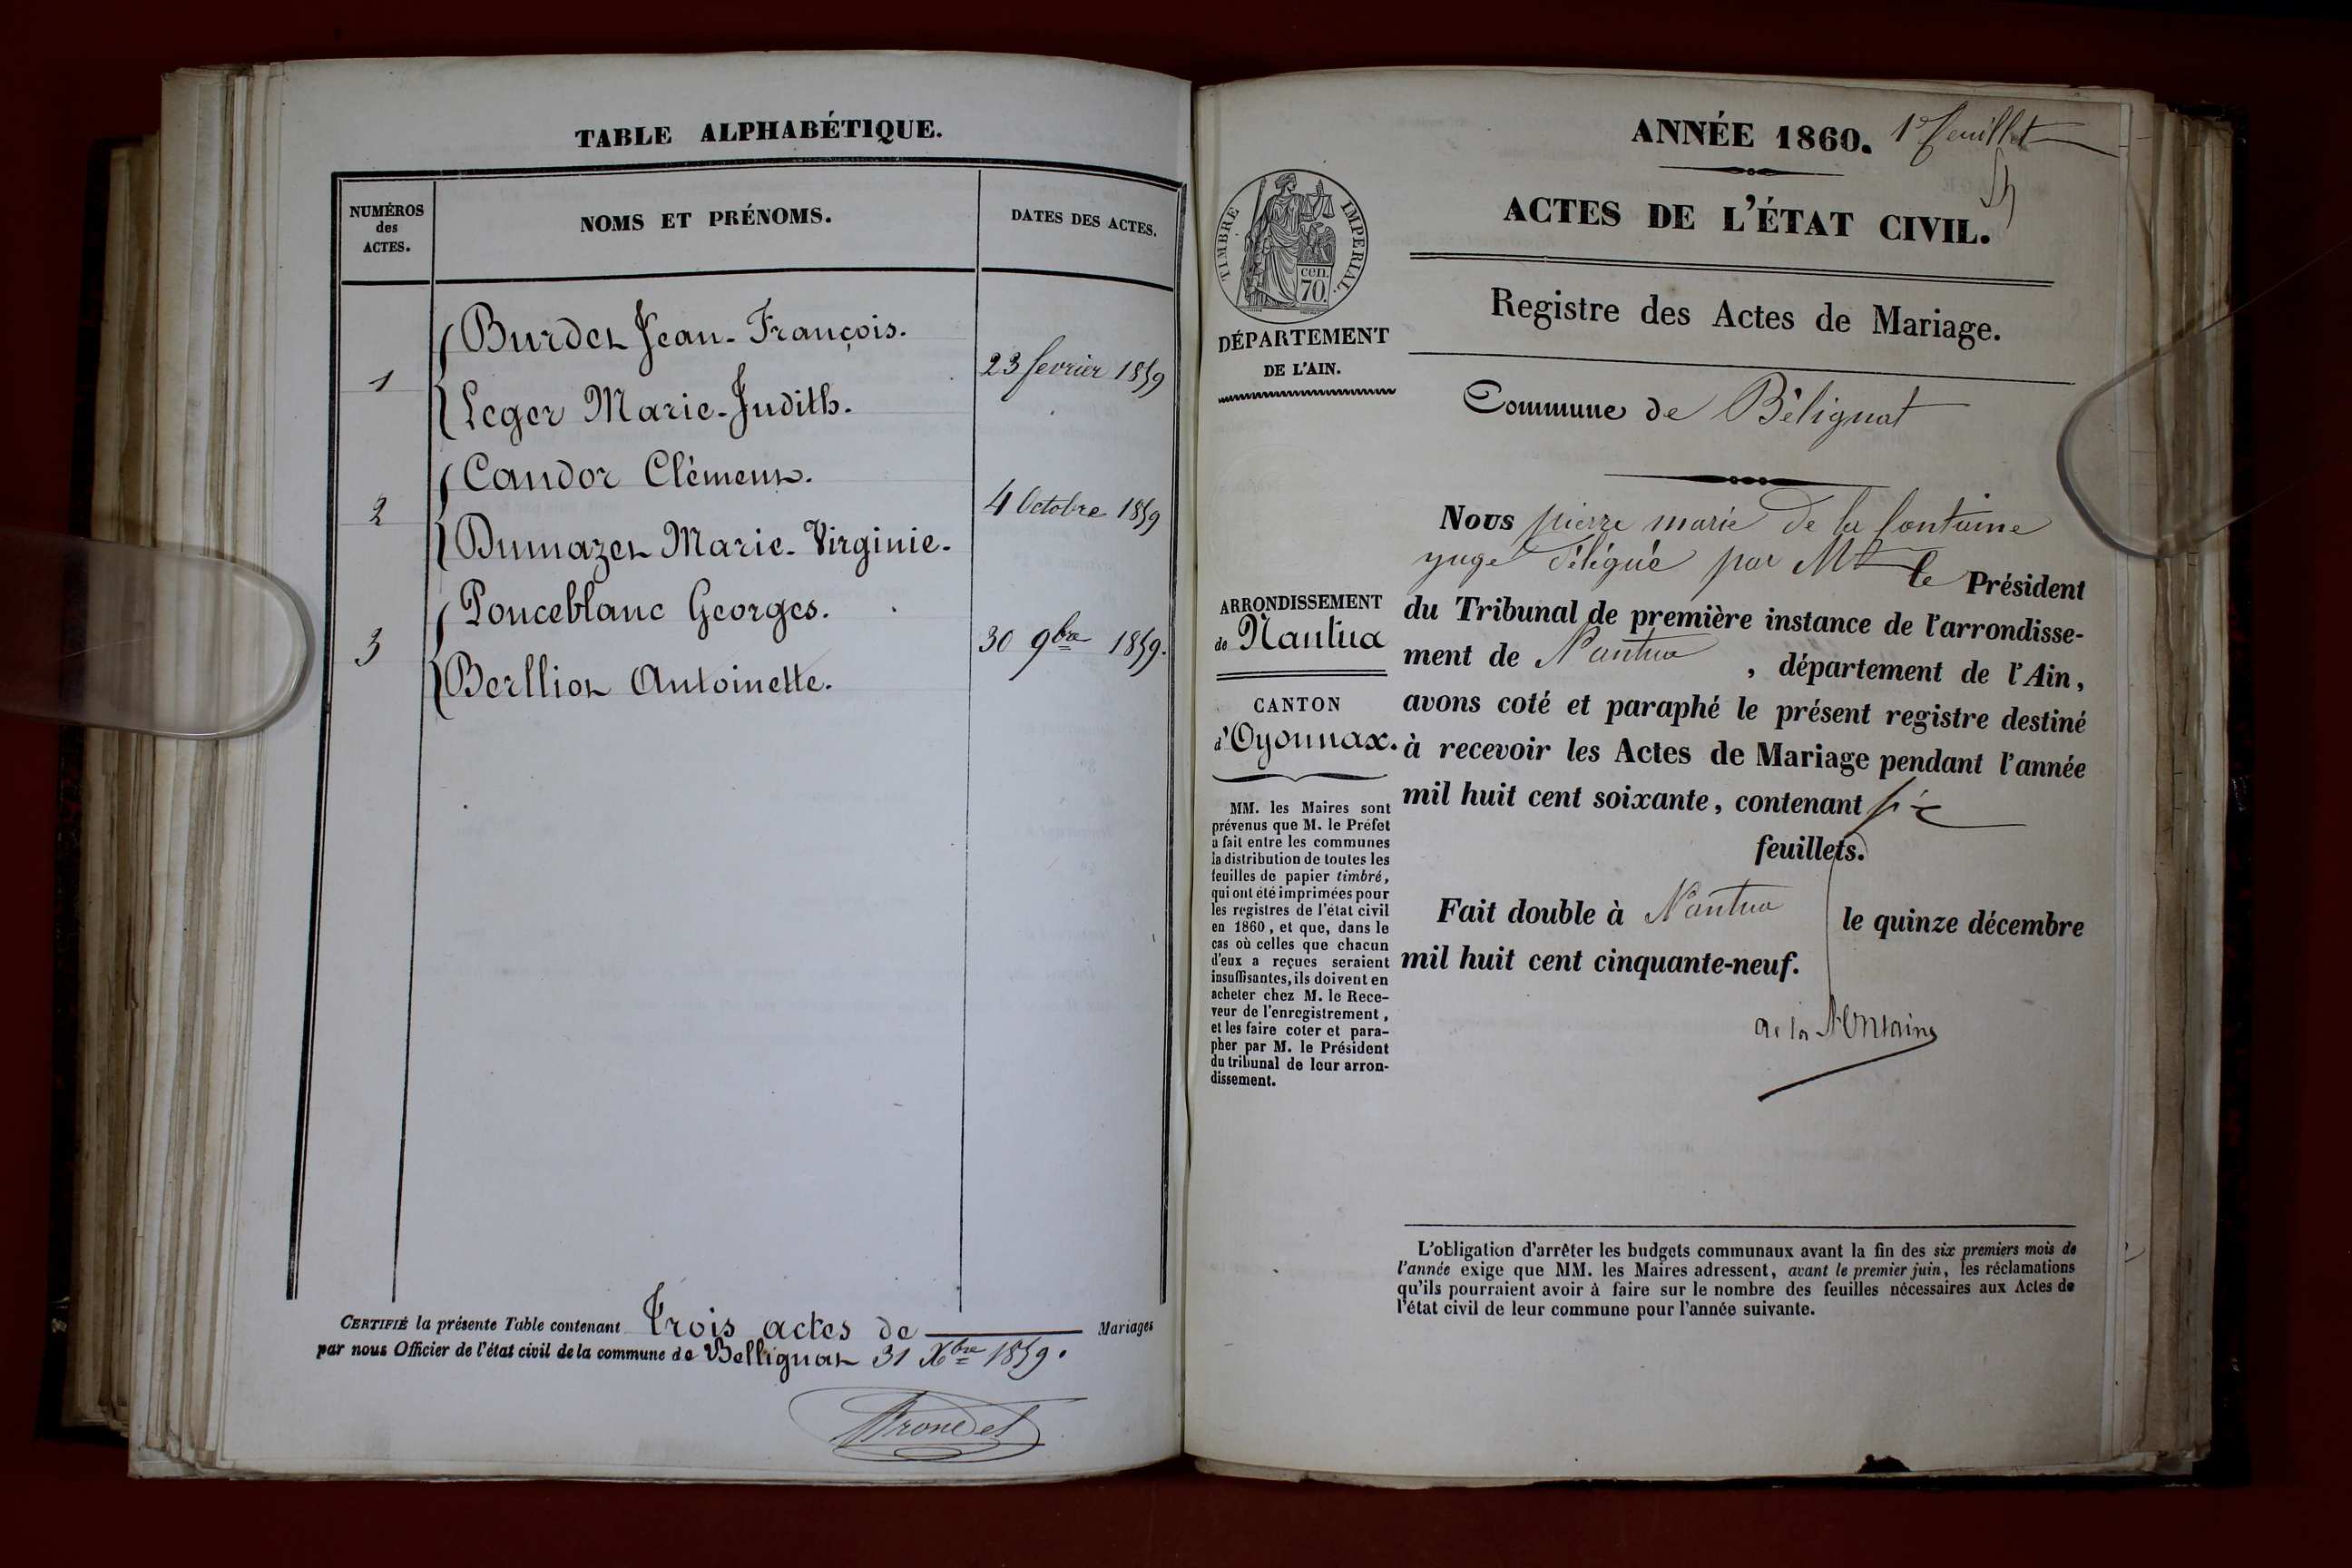 TABLE ALPHABÉTIQUE.
NUMÉROS des ACTES.
NOMS ET PRÉNOMS.
DATES DES ACTES.
1
Burdet Jean-François.
Leger Marie-Judith.
23 fevrier 1859
2
Candor Clément.
Dumazet Marie-Virginie.
4 Octobre 1859
3
Ponceblanc Georges.
Berlliot Antoinette.
30 9bre 1859.
CERTIFIÉ la présente Table contenant Trois actes de Mariages
par nous Officier de l'état civil de la commune de Bellignat 31 Xbre 1859.
ANNÉE 1860. 1er feuillet
ACTES DE L'ÉTAT CIVIL.
Registre des Actes de Mariage.
TIMBRE IMPERIAL.
cen.
70.
DÉPARTEMENT
DE L'AIN.
Commune de Bélignat
ARRONDISSEMENT
de Nantua
CANTON
d'Oyonnax.
MM. les Maires sont
prévenus que M. le Préfet
a fait entre les communes
la distribution de toutes les
feuilles de papier timbré,
qui ont été imprimées pour
les registres de l'état civil
en 1860, et que, dans le
cas où celles que chacun
d'eux a reçues seraient
insuffisantes, ils doivent en
acheter chez M. le Rece-
veur de l'enregistrement,
et les faire coter et para-
pher par M. le Président
du tribunal de leur arron-
dissement.
Nous pierre marie de la fontaine
juge délégué par Mr le Président
du Tribunal de première instance de l'arrondisse-
ment de Nantua, département de l'Ain,
avons coté et paraphé le présent registre destiné
à recevoir les Actes de Mariage pendant l'année
mil huit cent soixante, contenant six
feuillets.
Fait double à Nantua le quinze décembre
mil huit cent cinquante-neuf.
de la fontaine
L'obligation d'arrêter les budgets communaux avant la fin des six premiers mois de
l'année exige que MM. les Maires adressent, avant le premier juin, les réclamations
qu'ils pourraient avoir à faire sur le nombre des feuilles nécessaires aux Actes de
l'état civil de leur commune pour l'année suivante.